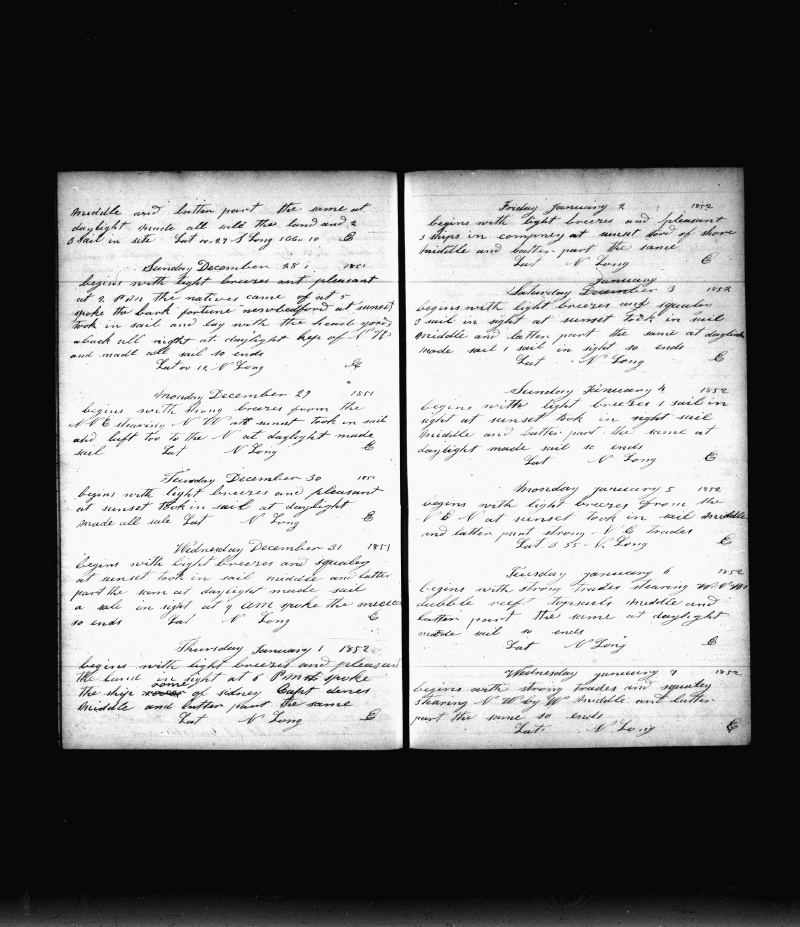 middle and latter part the same at
daylight made all sail the land and 2
3 sail in site Lat 00.27 S Long 1660 10 E
Sunday December 28 1851
begins with light breezes ant pleasant
at 2 P M the natives came of at 5
spoke the bark fortune newbedford at sunset
took in sail and lay with the head yards
aback all night at daylight kep of
and madt all sail so ends
Lat 00 12 N Long E
Monday December 29 1851
begins with strong breezes from the
N N E stearing N W at sunset took in sail
and luft too to the N at daylight made
sail Lat N Long E
Tuesday December 30 1851
begins with light breezes and pleasant
at sunset took in sail at daylight
made all sale Lat N Long E
Wednesday December 31 1851
begins with light breezes and squaley
at sunset took in sail middle and latter
part the sam at daylight made sail
a sale in sight at 9 AM spoke the
so ends Lat N Long E
Thursday January 1 1852
begins with light breezes and pleasant
the land in sight at 6 P M spoke
the ship rome of sidney Capt
middle and latter part the same
Lat N Long E
Friday January 2 1852
begins with light breezes and pleasant
3 ships in compney at sunset stood of shore
middle and latter part the same
Lat N Long E
January
Saturday December 3 1852
begins with light breezes and squaley
3 sail in sight at sunset took in sail
middle and latter part the same at daylight
made sail 1 sail in sight so ends
Lat N Long E
Sunday January 4 1852
begins with light breezes 1 sail in
sight at sunset took in sail
middle and latter part the same at
daylight made sail so ends
Lat N Long E
Monday january 5 1852
begins with light breezes from the
N E N at sunset took in sail middle
and latter part strong N E trades
Lat 3 55 N Long E
Tuesday january 6 1852
begins with strong trades stearing
dubble reef topsails middle and
latter part the same at daylight
made sail so ends
Lat N Long E
Wednesday january 7 1852
begins with strong trades and squaley
stearing N W by W middle and latter
part the same so ends
Lat N Long E